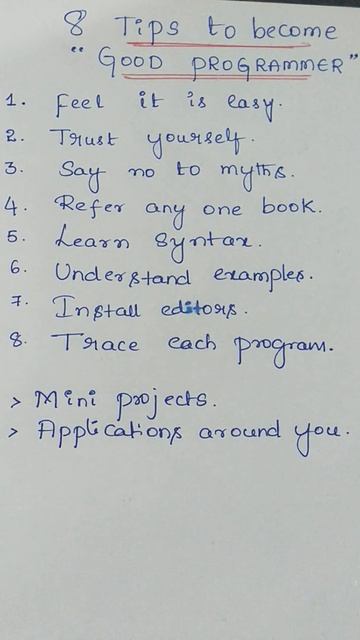 8 Tips to become
"GOOD PROGRAMMER"
1. Feel it is easy.
2. Trust yourself.
3. Say no to myths.
4. Refer any one book.
5. Learn syntax.
6. Understand examples.
7. Install editors.
8. Trace each program.
> Mini projects.
> Applications around you.